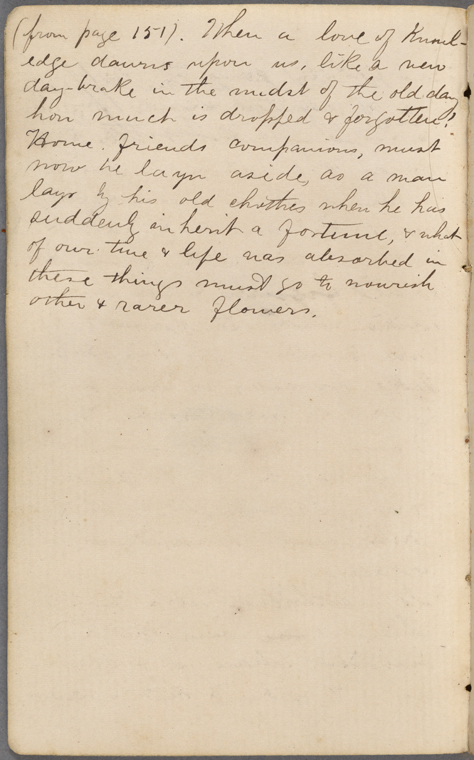 (from page 151). When a love of Knowl-
edge dawns upon us, like a new
day-brake in the midst of the old day
how much is dropped & forgotten!
Home. friends companions, must
now be layn aside, as a man
lays by his old clothes when he has
suddenly inherit a fortune, & what
of our time & life was absorbed in
these things must go to nourish
other & rarer flowers.